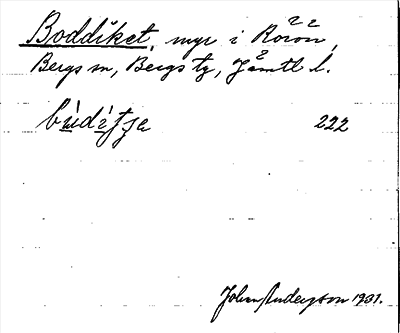 Boddiket, myr i Rörön,
Bergs sn, Bergs tg, Jämtl l.
bùdìtjɐ 222
John Anderson 1931.